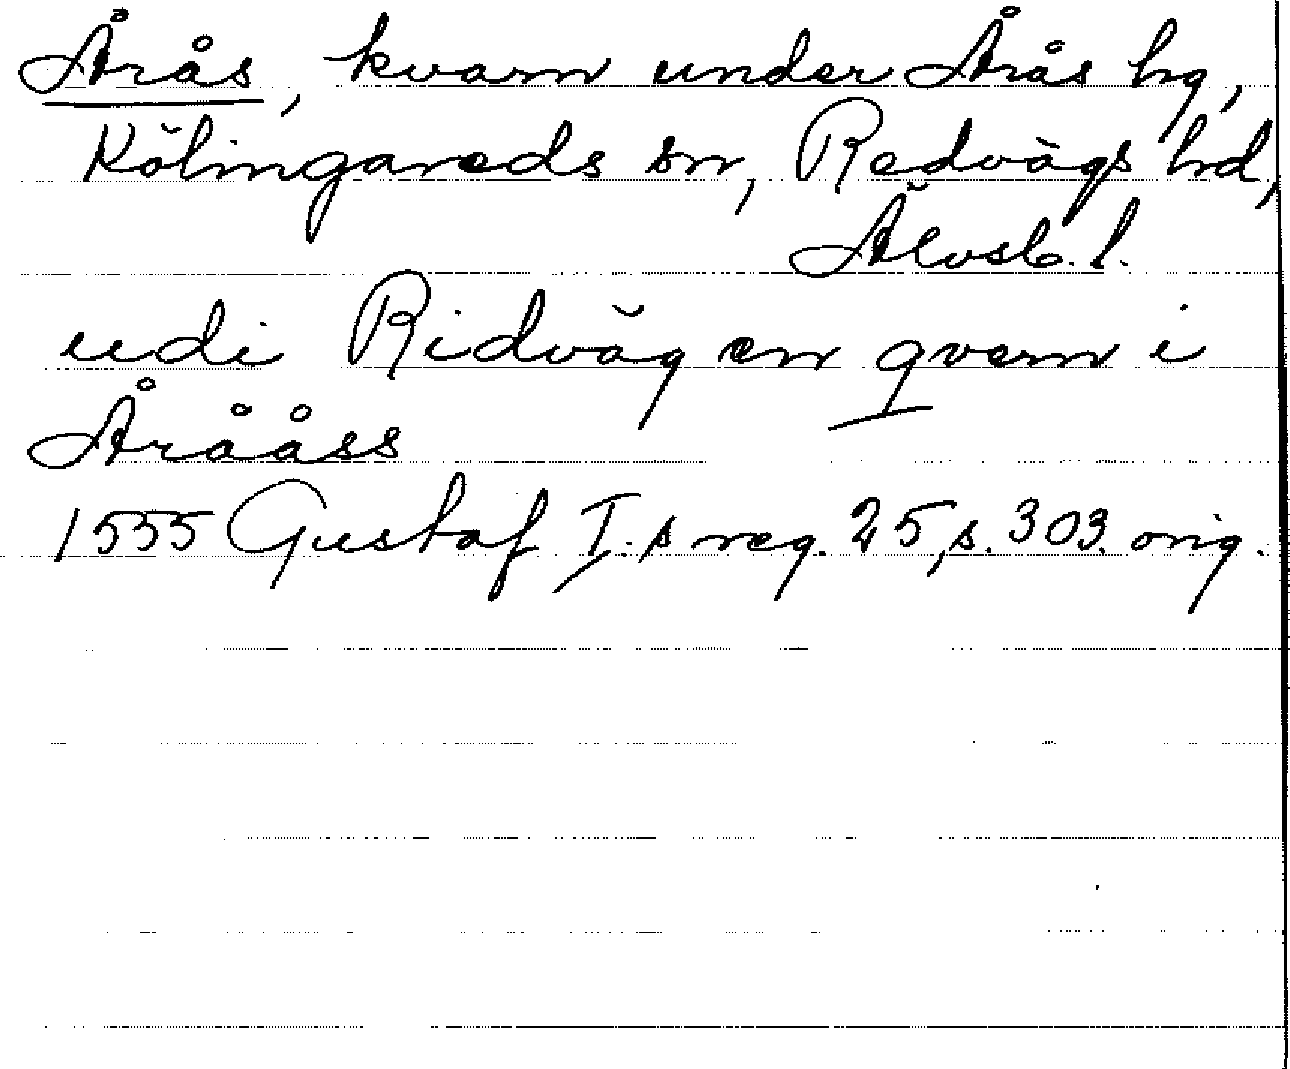 Årås, kvarn under Årås hg,
Kölingareds sn, Redvägs hd,
Älvsb. l.
udi Ridväg en qvern i
Årååss
1555 Gustaf I:s reg. 25, s. 303. orig.